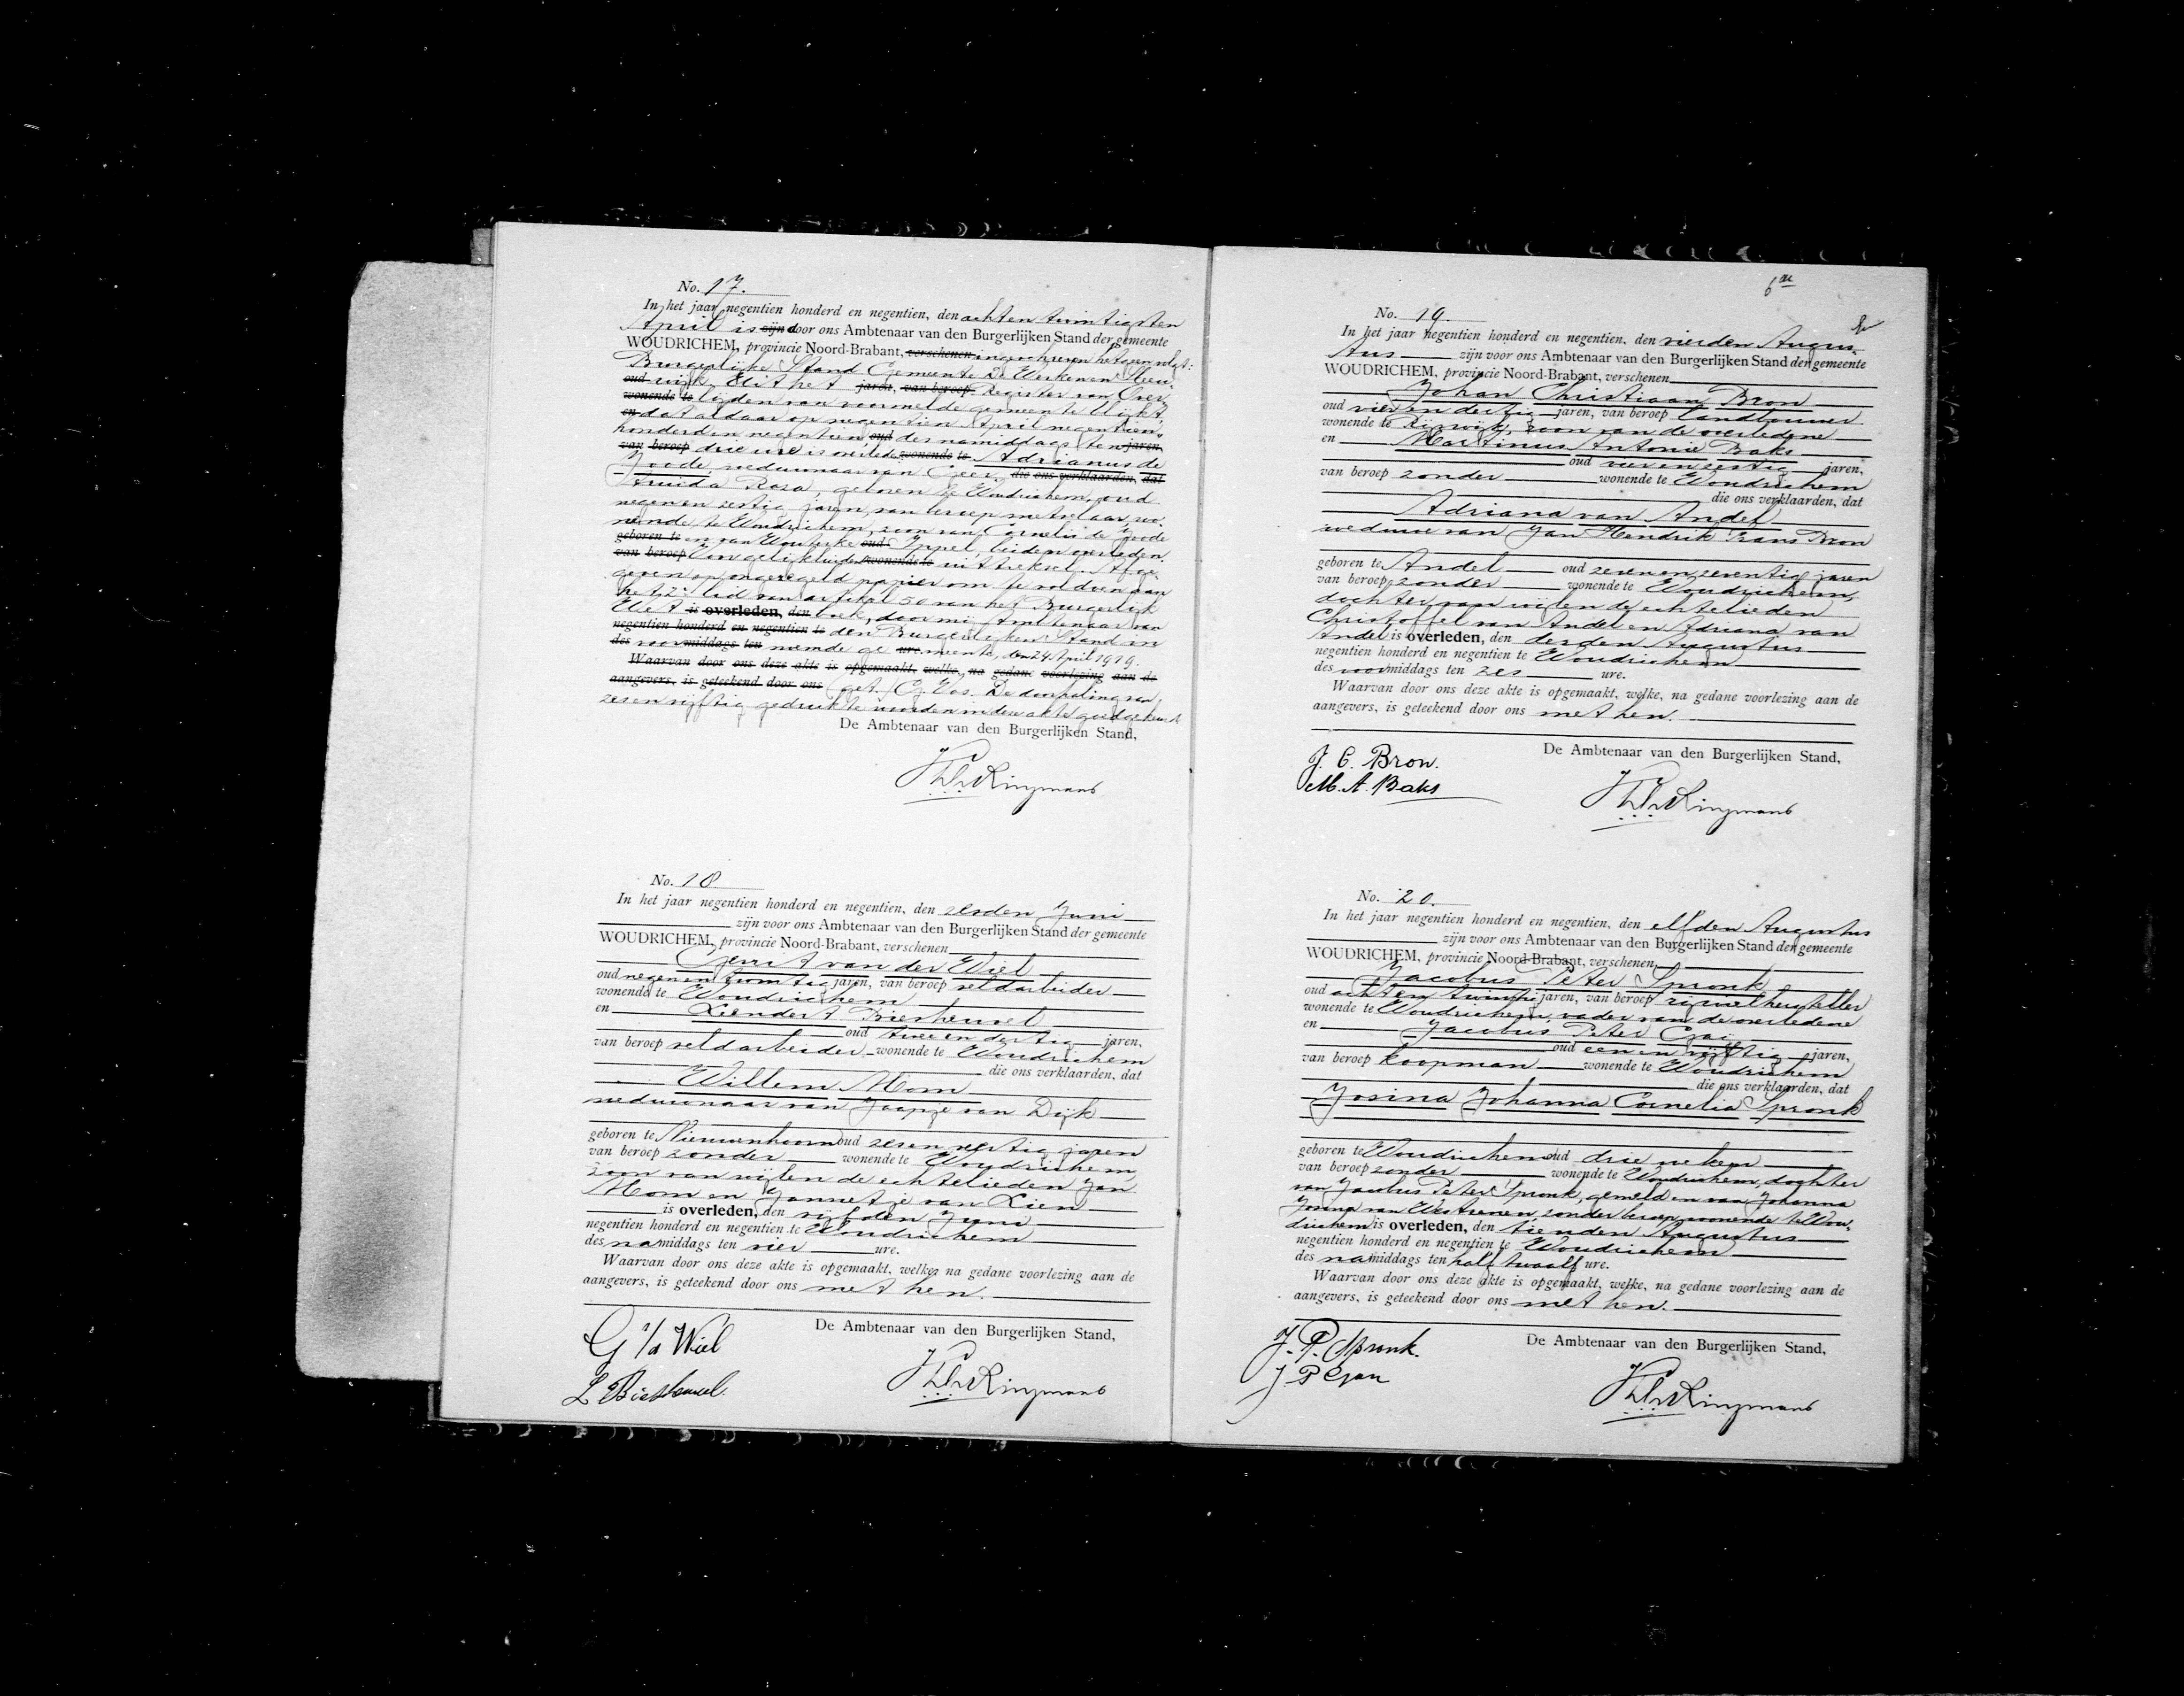 No. 17.
In het jaar negentien honderd en negentien, den achtentwintigsten
April is zijn door ons Ambtenaar van den Burgerlijken Stand der gemeente
WOUDRICHEM, provincie Noord-Brabant, verschenen ingeschreven hetgeen volgt:
Burgerlijke Stand Gemeente De Werken en Sleeu-
oud wijk. Uit het jaren, van beroep Register van Over-
wonende te lijden van voormelde gemeente blijkt,
en dat aldaar op negentien April negentien-
honderd en negentien, oud des namiddags ten jaren,
van beroep drie ure is overleden wonende te Adrianus de
Joode, weduwnaar van Geer- die ons verklaarden, dat
truida Roza, geboren te Woudrichem, oud
negen en zestig jaren, van beroep metselaar, wo-
nende te Woudrichem, zoon van Cornelis de Joode
geboren te en van Wouterke oud Ippel, beiden overleden.
van beroep Voor gelijkluidend wonende te uittreksel. Afge-
geven op ongezegeld papier om te voldoen aan
het 2e lid van artikel 50 van het Burgerlijk
Wet is overleden, den boek, door mij Ambtenaar van
negentien honderd en negentien te den Burgerlijken Stand in
des voormiddags ten noemde ge ure meente, den 24 April 1919.
Waarvan door ons deze akte is opgemaakt, welke, na gedane voorlezing aan de
aangevers, is geteekend door ons (get.) G. Vos. De doorhaling van
zes en vijftig gedrukte woorden in deze akte goedgekeurd.
De Ambtenaar van den Burgerlijken Stand,
No. 18
In het jaar negentien honderd en negentien, den zesden Juni
zijn voor ons Ambtenaar van den Burgerlijken Stand der gemeente
WOUDRICHEM, provincie Noord-Brabant, verschenen
Gerrit van der Wiel
oud negen en twintig jaren, van beroep veldarbeider
wonende te Woudrichem
en Leendert Biesheuvel
oud twee en dertig jaren,
van beroep veldarbeider wonende te Woudrichem
die ons verklaarden, dat
Willem Mom
weduwnaar van Jaapje van Dijk
geboren te Nieuwenhoorn oud zes en jaren
van beroep zonder wonende te Woudrichem,
zoon van wijlen de echtelieden Jan
Mom en Jannetje van Lien
is overleden, den vijfden Juni
negentien honderd en negentien te Woudrichem
des namiddags ten vier ure.
Waarvan door ons deze akte is opgemaakt, welke, na gedane voorlezing aan de
aangevers, is geteekend door ons met hen.
De Ambtenaar van den Burgerlijken Stand,
G v/d Wiel
L Biesheuvel.
6de
No. 19.
In het jaar negentien honderd en negentien, den vierden Augus-
tus zijn voor ons Ambtenaar van den Burgerlijken Stand der gemeente
WOUDRICHEM, provincie Noord-Brabant, verschenen
Johan Christiaan Bron
oud vier en dertig jaren, van beroep landbouwer
wonende te Rijswijk, zoon van de overledene
en Martinus Antonie Baks
oud vier en zestig jaren,
van beroep zonder wonende te Woudrichem
die ons verklaarden, dat
Adriana van Andel
weduwe van Jan Hendrik Frans Bron
geboren te Andel oud zeven en zeventig jaren
van beroep zonder wonende te Woudrichem,
dochter van wijlen de echtelieden
Christoffel van Andel en Adriana van
Andel is overleden, den derden Augustus
negentien honderd en negentien te Woudrichem
des voormiddags ten zes ure.
Waarvan door ons deze akte is opgemaakt, welke, na gedane voorlezing aan de
aangevers, is geteekend door ons met hen.
De Ambtenaar van den Burgerlijken Stand,
J. C. Bron.
M. A. Baks
No. 20.
In het jaar negentien honderd en negentien, den elfden Augustus
zijn voor ons Ambtenaar van den Burgerlijken Stand der gemeente
WOUDRICHEM, provincie Noord-Brabant, verschenen
Jacobus Peter Spronk
oud acht en twintig jaren, van beroep rijwielhersteller
wonende te Woudrichem, vader van de overledene
en Jacobus Peter
oud een en vijftig jaren,
van beroep koopman wonende te Woudrichem
die ons verklaarden, dat
Josina Johanna Cornelia Spronk
geboren te Woudrichem oud drie weken
van beroep zonder wonende te Woudrichem, dochter
van Jacobus Peter Spronk, gemeld en van Johanna
Josina van Westrenen, zonder beroep, wonende te Wou-
drichem is overleden, den tienden Augustus
negentien honderd en negentien te Woudrichem
des namiddags ten half twaalf ure.
Waarvan door ons deze akte is opgemaakt, welke, na gedane voorlezing aan de
aangevers, is geteekend door ons met hen.
De Ambtenaar van den Burgerlijken Stand,
J. P. Spronk.
J. P.